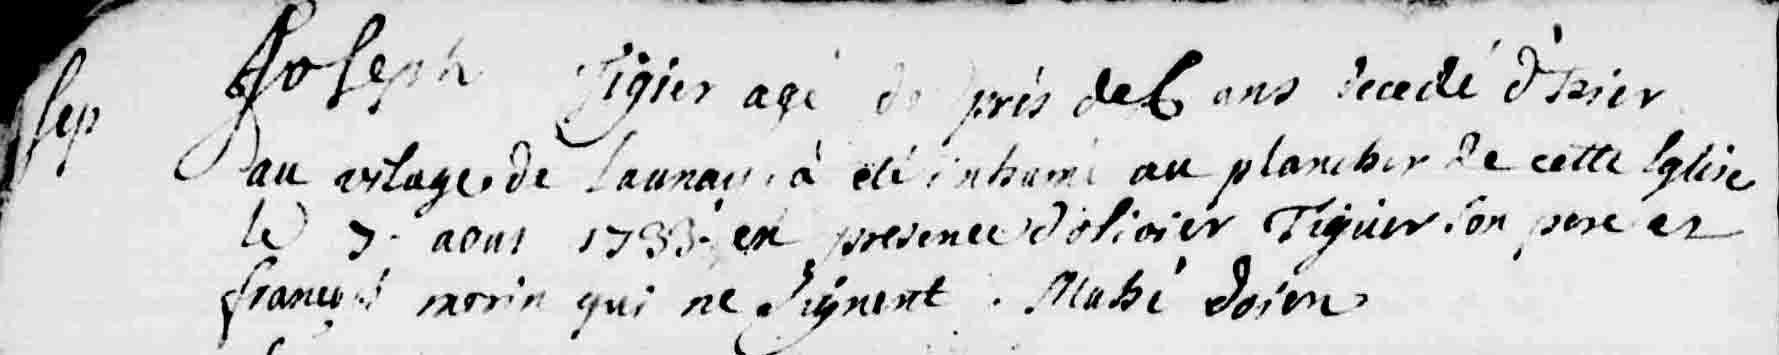 sep
Joseph Tigier agé de près de 6 ans decedé d'hier
au vilage de Launay, à été inhumé au plancher de cette Eglise
le 7. aout 1733. en presence d'olivier Tiguier son pere et
françois morin qui ne signent. Mahé doien